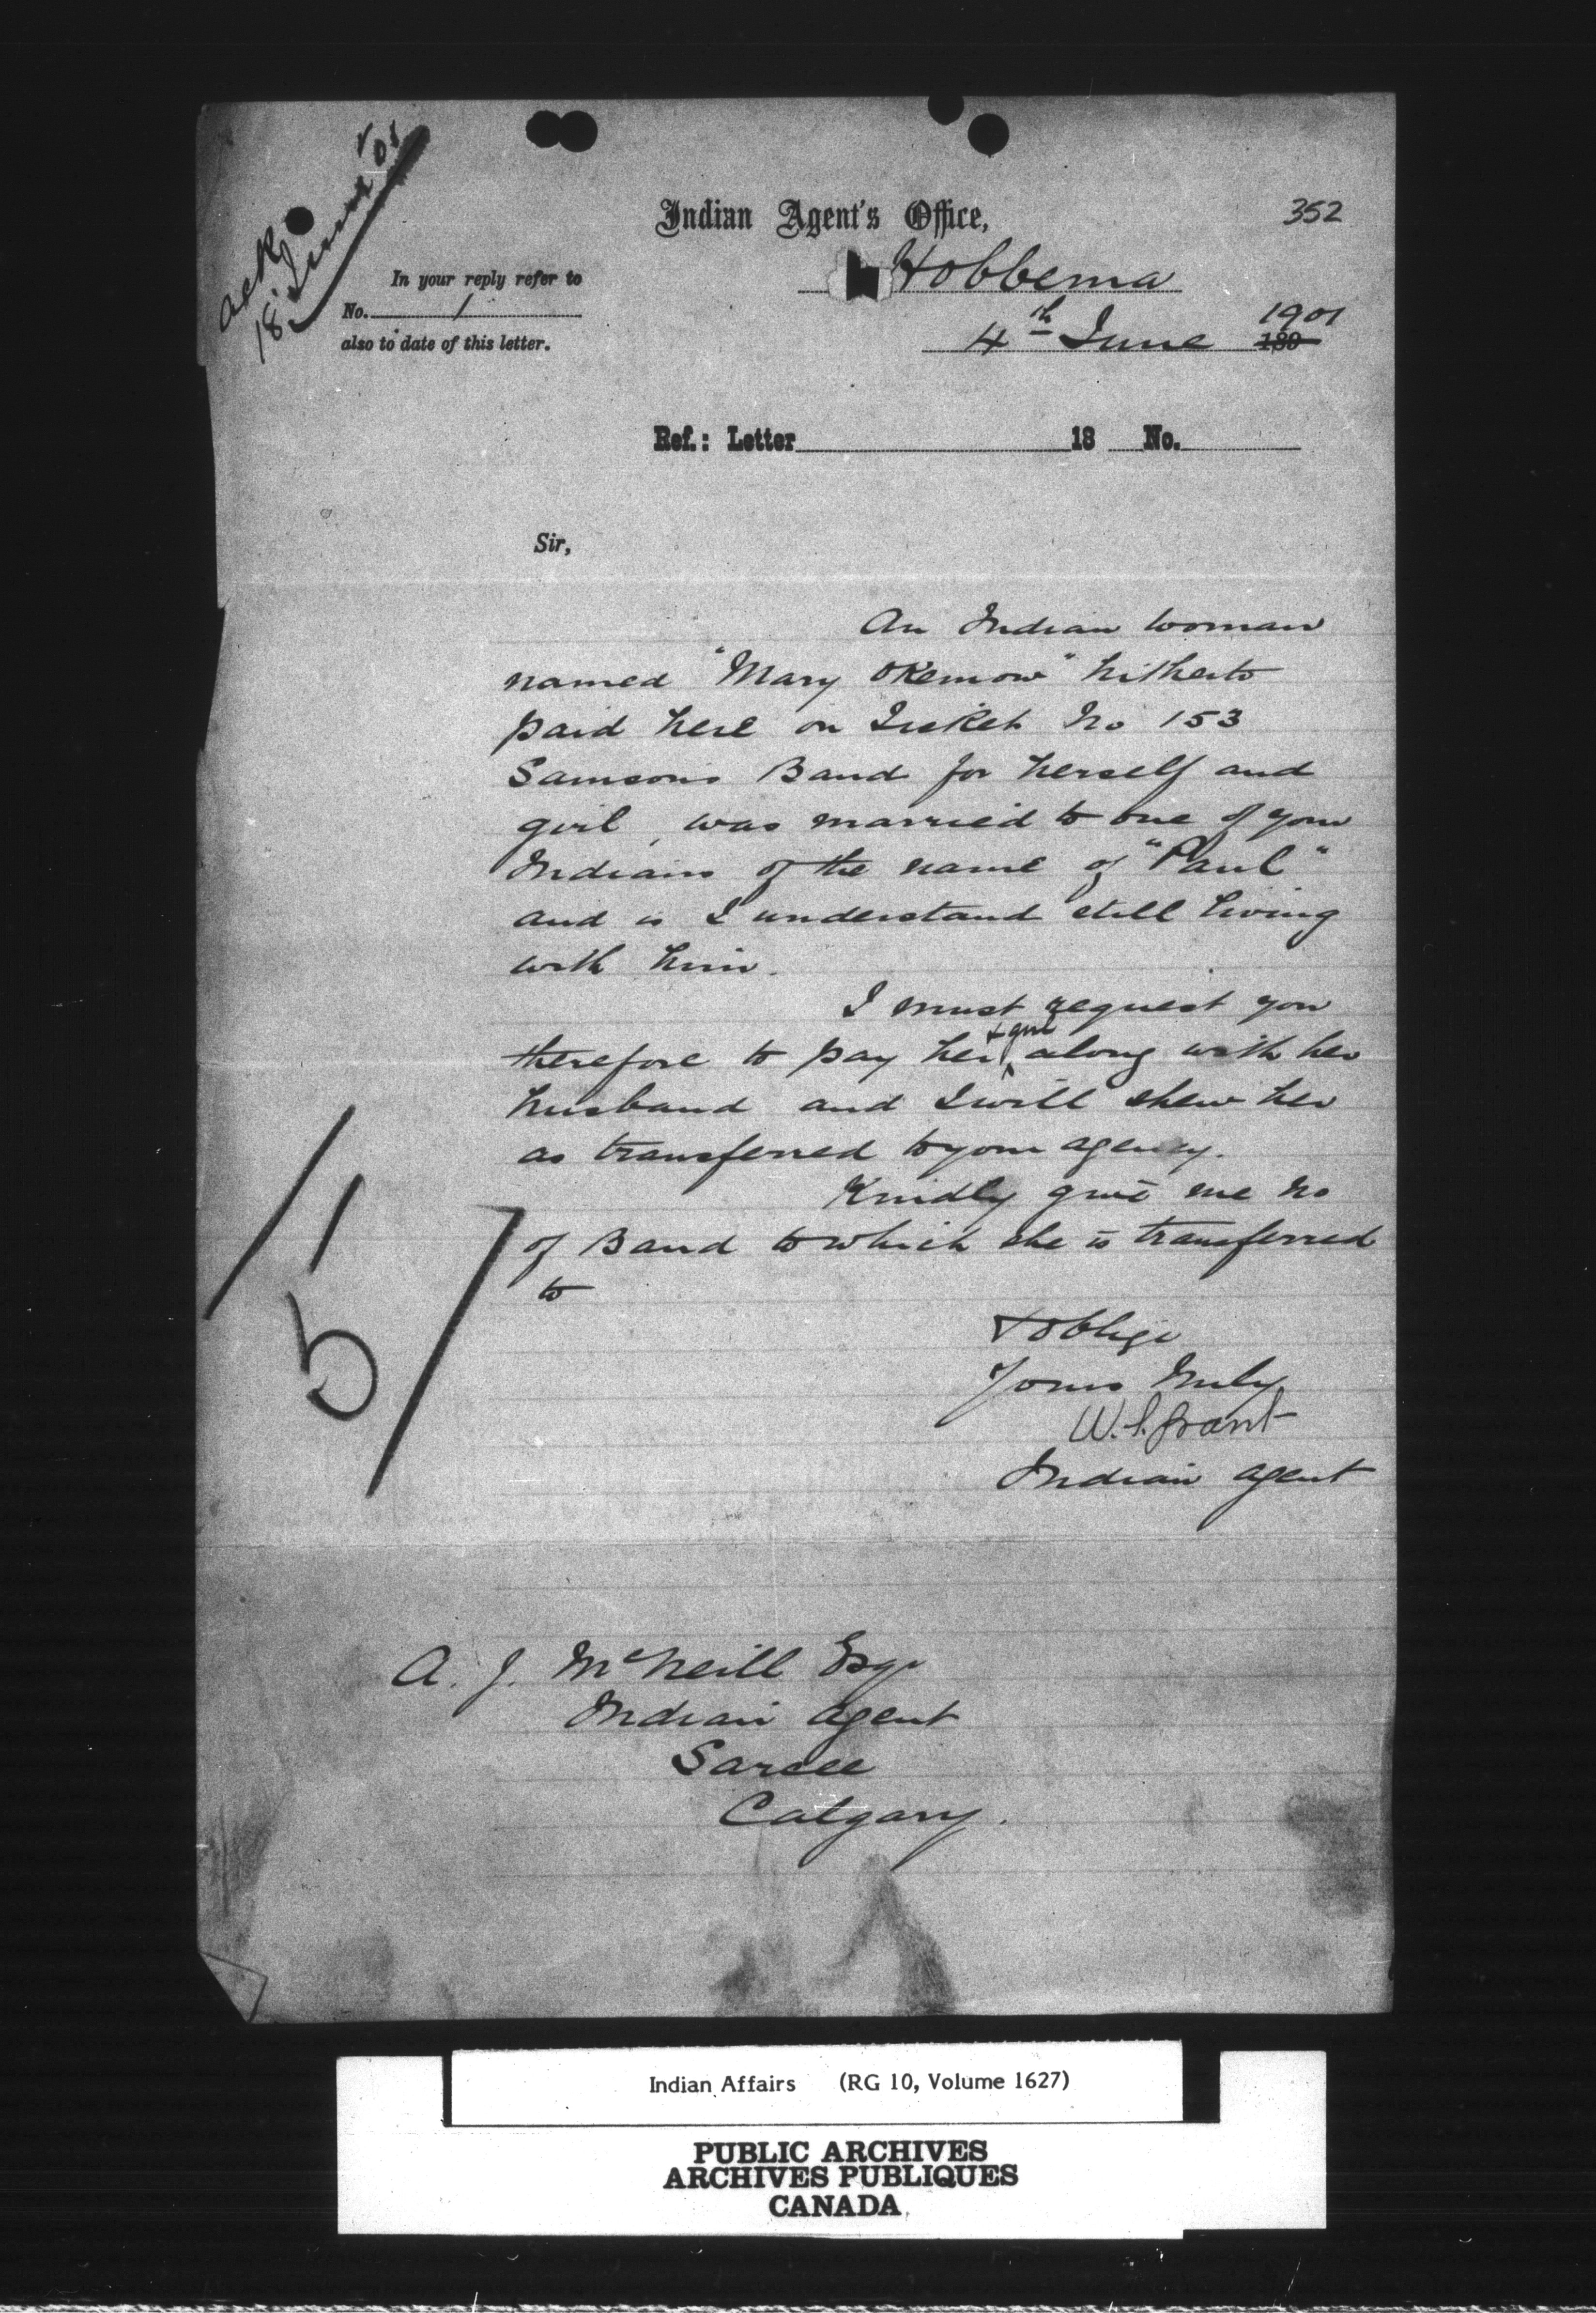 ack
18 June '01
352
Indian Agent's Office,
Hobbema
4th June 1901
189
In your reply refer to
No. 1
also to date of this letter.
Ref.: Letter 18 No.
Sir,
An Indian woman
named "Mary Okemow" hitherto
paid here on Ticket No 153
Samsons Band for herself and
girl, was married to one of your
Indians of the name of "Paul"
and is I understand still living
with him.
I must request you
& girl
therefore to pay her along with her
husband and I will shew her
as transferred to your agency.
Kindly give me No
of Band to which she is transferred
to
& oblige
Yours truly
W. S. Grant
Indian Agent
1
5
A. J. McNeill Esqr
Indian Agent
Sarcee
Calgary.
Indian Affairs (RG 10, Volume 1627)
PUBLIC ARCHIVES
ARCHIVES PUBLIQUES
CANADA